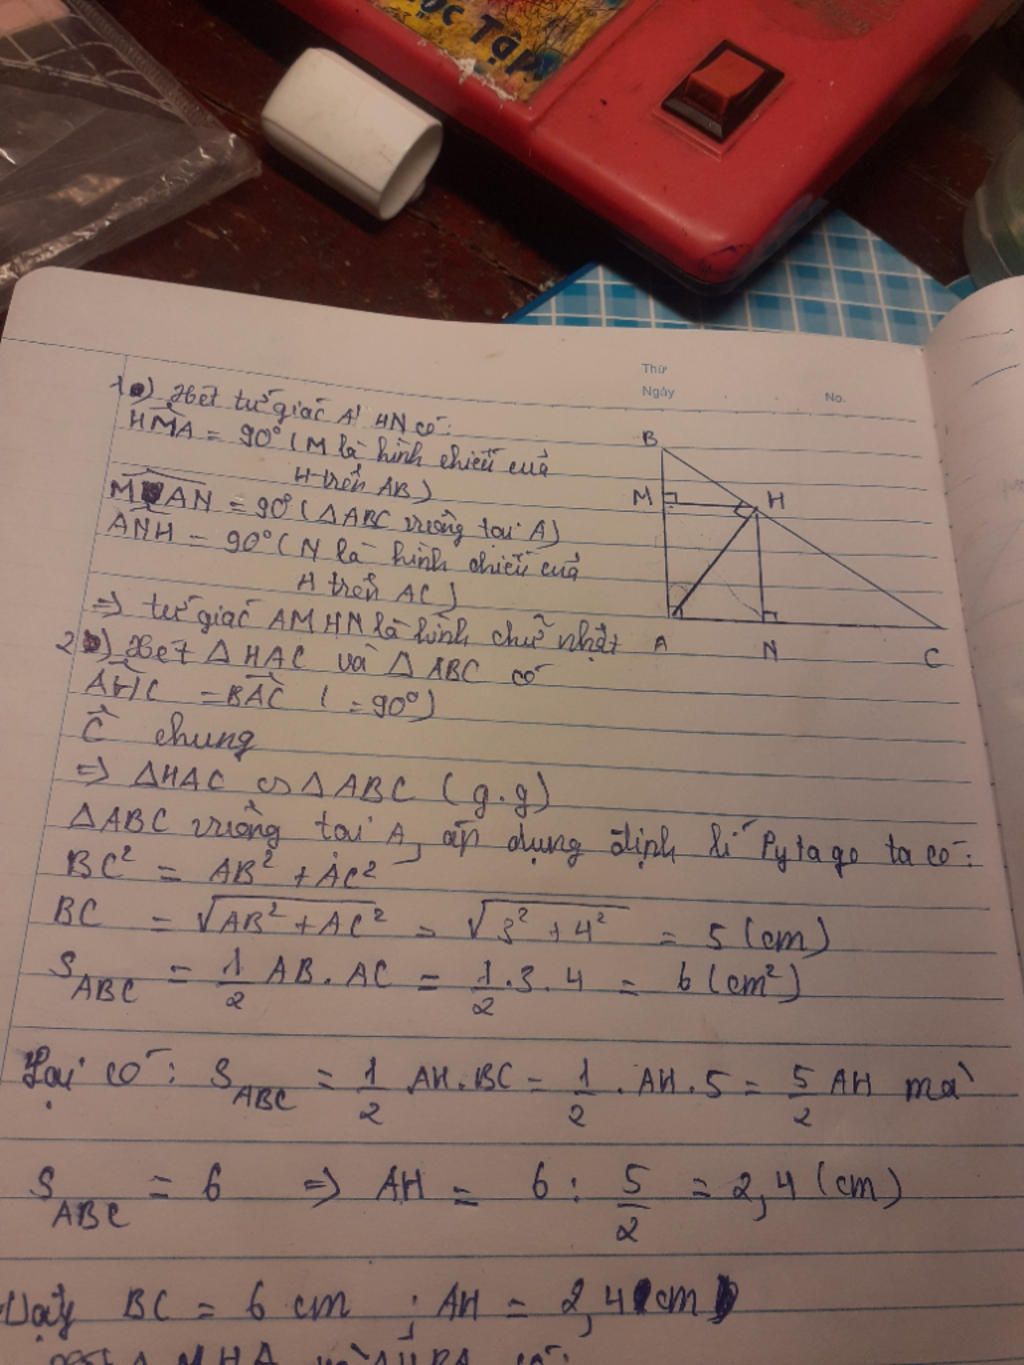 ỌC TẬP
Thứ
Ngày
No.
1) Xét tứ giác A HN có:
HMA = 90° (M là hình chiếu của
H trên AB)
MAN = 90° (△ABC vuông tại A)
ANH = 90° (N là hình chiếu của
H trên AC)
=> tứ giác AMHN là hình chữ nhật
B
M
H
A
N
C
2) Xét △ HAC và △ ABC có
AHC = BAC ( = 90°)
Ĉ chung
=> △HAC ∽ △ABC (g.g)
△ABC vuông tại A, áp dụng định lí Pytago ta có:
BC² = AB² + AC²
BC = √(AB² + AC²) = √(3² + 4²) = 5 (cm)
S_ABC = 1/2 AB. AC = 1/2 . 3. 4 = 6 (cm²)
Lại có: S_ABC = 1/2 AH. BC = 1/2 . AH. 5 = 5/2 AH mà
S_ABC = 6 => AH = 6 : 5/2 = 2,4 (cm)
Vậy BC = 6 cm ; AH = 2,4 cm
△ MHA và △HBA có: